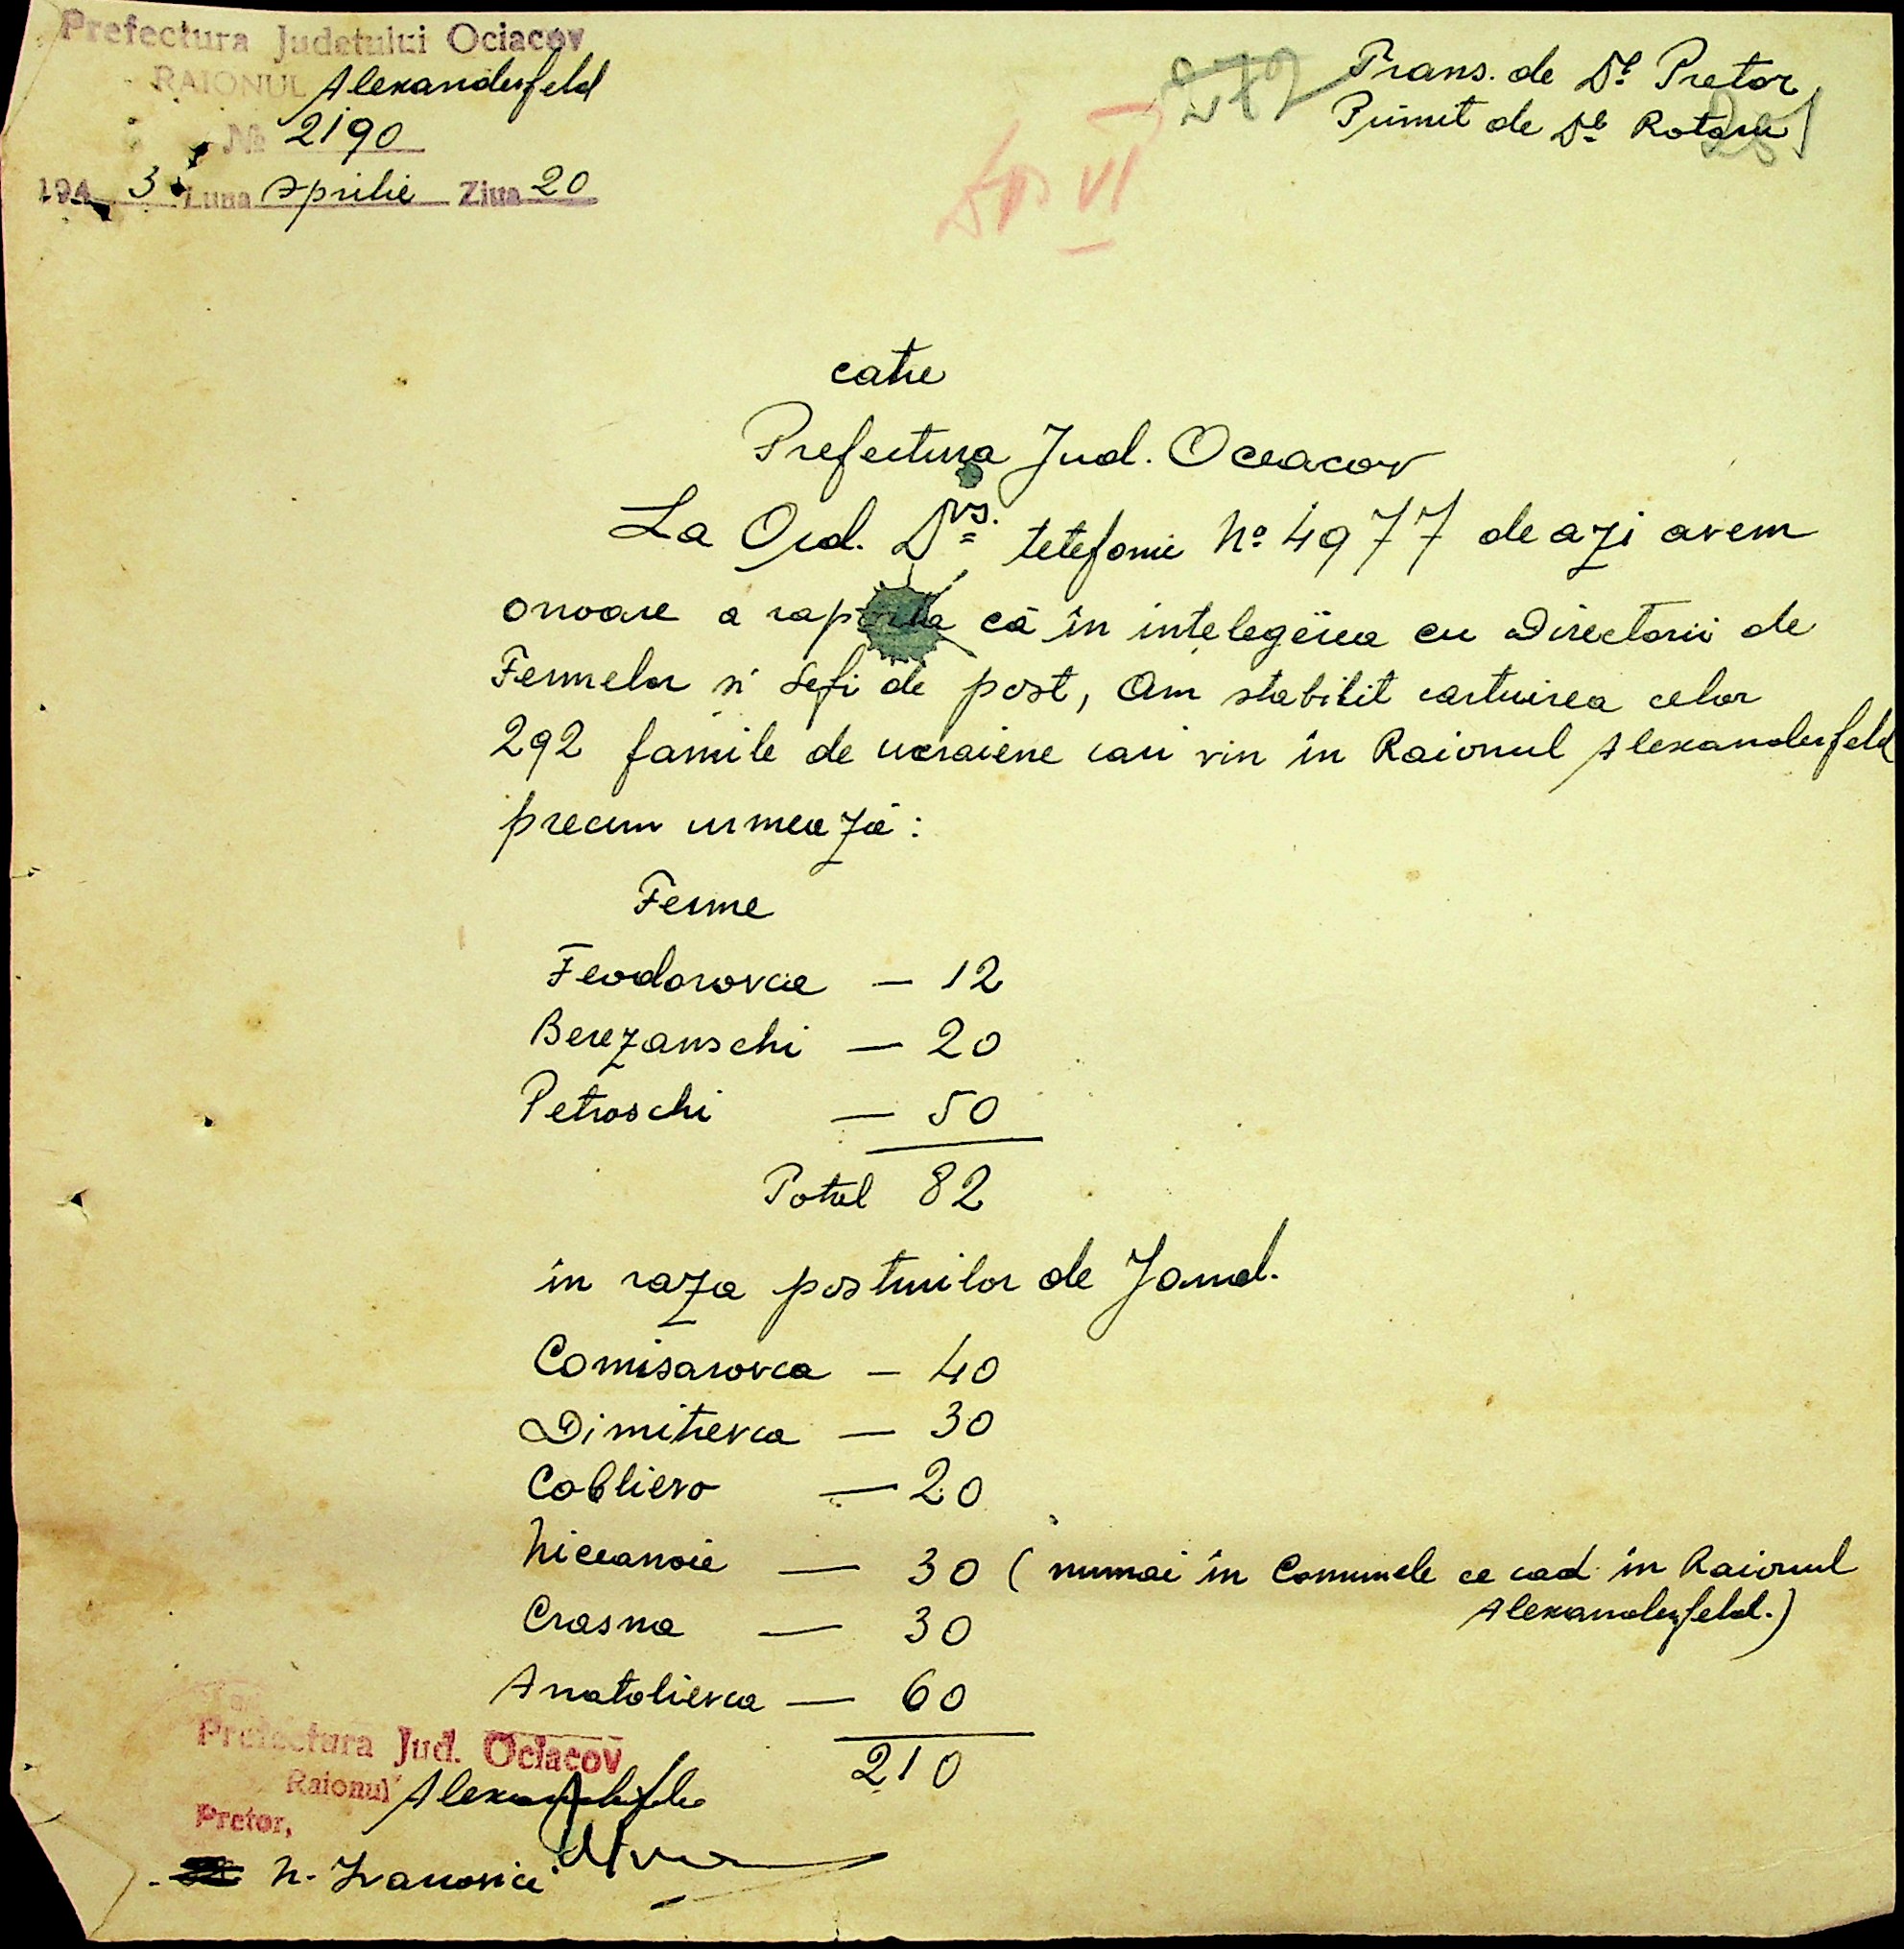 Prefectura Judetului Ociacov
RAIONUL Alexanderfeld
№ 2190
194 3 Luna Aprilie Ziua 20
272
Trans. de Dl Pretor
Primit de Dl Rotaru
VI
catre
Prefectura Jud. Oceacov
La Ord. Dvs. telefonic No 4977 de azi avem
onoare a raporta că înințelegerea cu Directorii de
Fermelor si Sefi de post, Am stabilit cartuirea celor
292 famile de ucraiene cari vin în Raionul Alexanderfeld
precum urmează:
Ferme
Feodorovca — 12
Berezanschi — 20
Petroschi — 50
Total 82
în raza posturilor de Jand.
Comisarovca — 40
Dimitrevca — 30
Coblievo — 20
Niceanoie — 30 ( numai în Comunele ce cad în Raionul
Alexanderfeld.)
Crasna — 30
Anatolievca — 60
210
Prefectura Jud. Ociacov
Raionul Alexanderfeld
Pretor,
N. Ivanovici